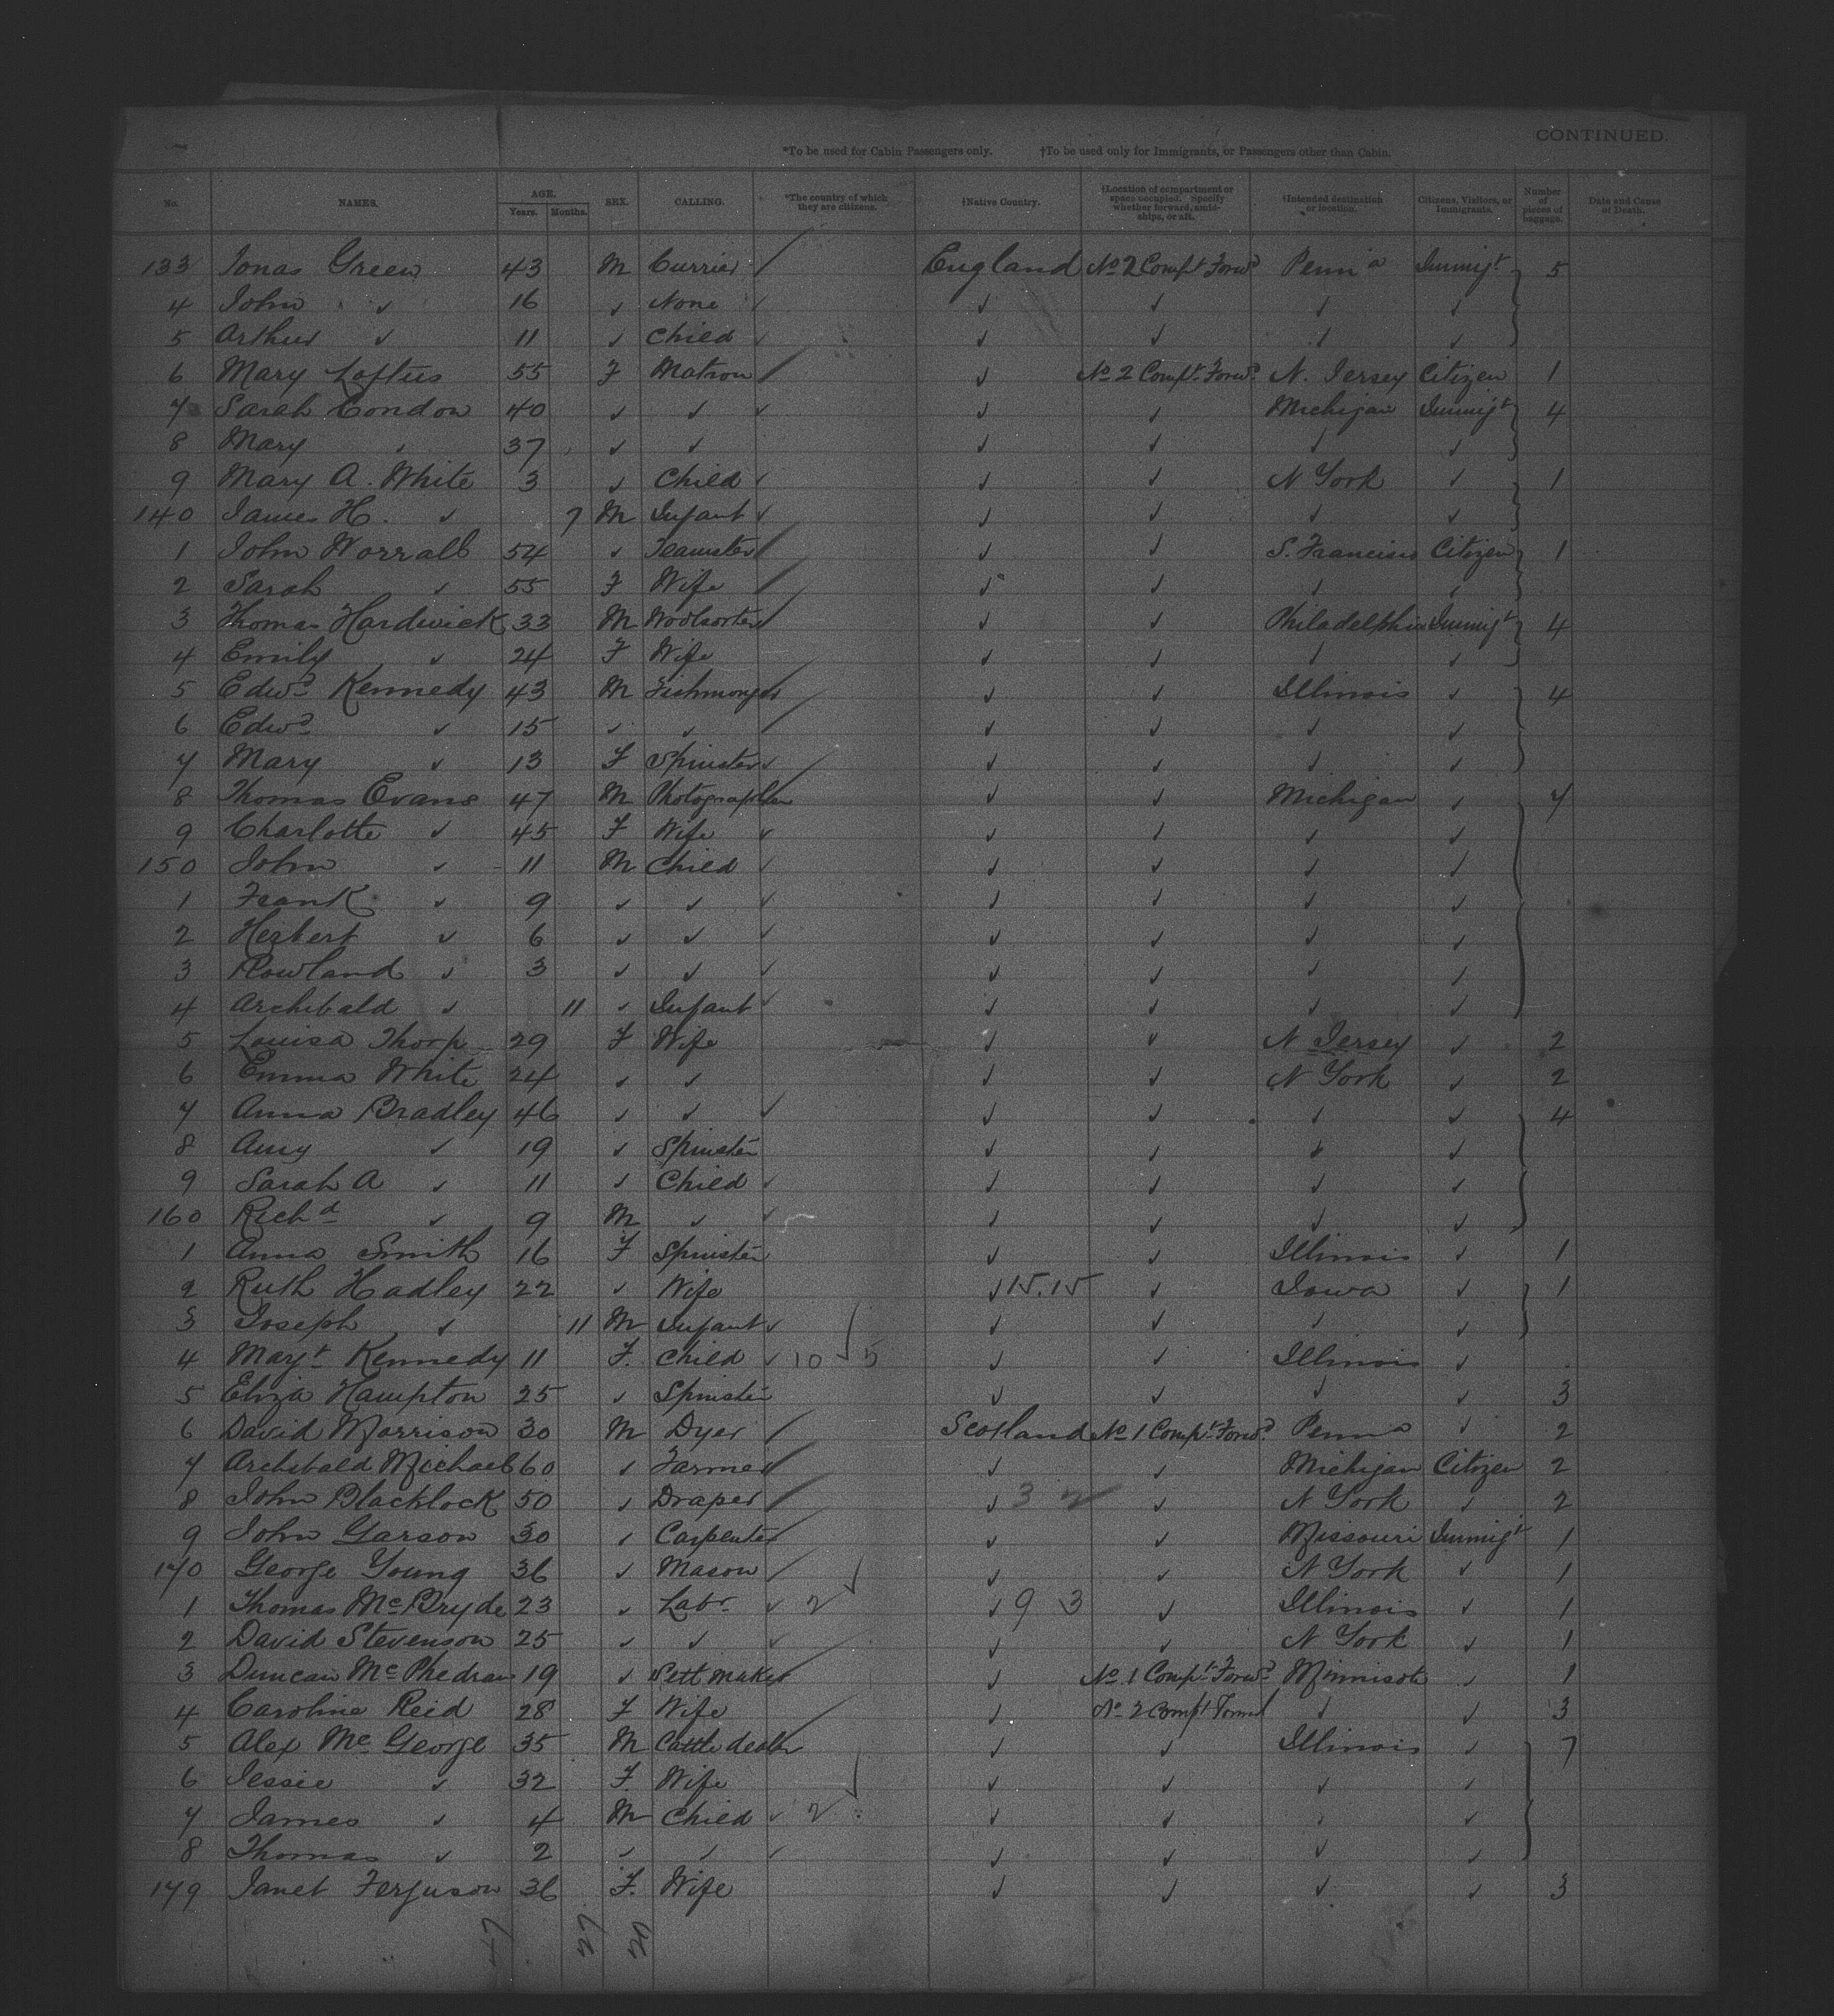 CONTINUED.
*To be used for Cabin Passengers only. †To be used only for Immigrants, or Passengers other than Cabin.
No. NAMES. AGE. Years. Months. SEX. CALLING. *The country of which they are citizens. †Native Country. †Location of compartment or space occupied. Specify whether forward, amidships, or aft. †Intended destination or location. Citizens, Visitors, or Immigrants. Number of pieces of baggage. Date and Cause of Death.
133 Jonas Green 43 M Currier / England No 2 Compt Forwd Penn'a Immigt 5
4 John ✓ 16 ✓ None ✓ ✓ ✓ ✓ ✓
5 Arthur ✓ 11 ✓ Child ✓ ✓ ✓ ✓ ✓
6 Mary Loftus 55 F Matron / ✓ No 2 Compt Forwd N. Jersey Citizen 1
7 Sarah Condon 40 ✓ ✓ ✓ ✓ ✓ Michigan Immigt 4
8 Mary ✓ 37 ✓ ✓ ✓ ✓ ✓ ✓
9 Mary A. White 3 ✓ Child ✓ ✓ ✓ N York ✓ 1
140 James H. ✓ 7 M Infant ✓ ✓ ✓ ✓ ✓
1 John Worrall 54 ✓ Teamster / ✓ ✓ S. Francisco Citizen 1
2 Sarah ✓ 55 F Wife / ✓ ✓ ✓ ✓
3 Thomas Hardwick 33 M Woolsorter / ✓ ✓ Philadelphia Immigt 4
4 Emily ✓ 24 F Wife ✓ ✓ ✓ ✓
5 Edwd Kennedy 43 M Fishmonger / ✓ ✓ Illinois ✓ 4
6 Edwd ✓ 15 ✓ ✓ / ✓ ✓ ✓ ✓
7 Mary ✓ 13 F Spinster ✓ ✓ ✓ ✓ ✓
8 Thomas Evans 47 M Photographer / ✓ ✓ Michigan ✓ 7
9 Charlotte ✓ 45 F Wife ✓ ✓ ✓ ✓ ✓
150 John ✓ 11 M Child ✓ ✓ ✓ ✓ ✓
1 Frank ✓ 9 ✓ ✓ ✓ ✓ ✓ ✓ ✓
2 Herbert ✓ 6 ✓ ✓ ✓ ✓ ✓ ✓ ✓
3 Rowland ✓ 3 ✓ ✓ ✓ ✓ ✓ ✓ ✓
4 Archibald ✓ 11 ✓ Infant ✓ ✓ ✓ ✓ ✓
5 Louisa Thorp 29 F Wife ✓ ✓ N Jersey ✓ 2
6 Emma White 24 ✓ ✓ ✓ ✓ N York ✓ 2
7 Anna Bradley 46 ✓ ✓ ✓ ✓ ✓ ✓ ✓ 4
8 Amy ✓ 19 ✓ Spinster ✓ ✓ ✓ ✓
9 Sarah A ✓ 11 ✓ Child ✓ ✓ ✓ ✓ ✓
160 Richd ✓ 9 M ✓ ✓ ✓ ✓ ✓ ✓
1 Anna Smith 16 F Spinster ✓ ✓ Illinois ✓ 1
2 Ruth Hadley 22 ✓ Wife ✓ 15.15 ✓ Iowa ✓ 1
3 Joseph ✓ 11 M Infant ✓ ✓ ✓ ✓ ✓
4 Mayt Kennedy 11 F. Child ✓ 10 ✓ 5 ✓ ✓ Illinois ✓
5 Eliza Hampton 25 ✓ Spinster ✓ ✓ ✓ ✓ 3
6 David Morrison 30 M Dyer / Scotland No 1 Compt Forwd Penna ✓ 2
7 Archibald Michael 60 ✓ Farmer / ✓ ✓ Michigan Citizen 2
8 John Blacklock 50 ✓ Draper / ✓ 3 2 ✓ N York ✓ 2
9 John Garson 30 ✓ Carpenter / ✓ ✓ Missouri Immigt 1
170 George Young 36 ✓ Mason / ✓ ✓ N York ✓ 1
1 Thomas McBryde 23 ✓ Labr. ✓ 2 ✓ 9 3 ✓ Illinois ✓ 1
2 David Stevenson 25 ✓ ✓ ✓ ✓ ✓ N York ✓ 1
3 Duncan McPhedran 19 ✓ Sett Maker / ✓ No 1 Compt Forwd Minnisota ✓ 1
4 Caroline Reid 28 F Wife / ✓ No 2 Compt Forwd ✓ ✓ 3
5 Alex McGeorge 35 M Cattle dealer / ✓ ✓ Illinois ✓ 7
6 Jessie ✓ 32 F. Wife ✓ ✓ ✓ ✓
7 James ✓ 4 M Child ✓ 2 ✓ ✓ ✓ ✓
8 Thomas ✓ 2 ✓ ✓ ✓ ✓ ✓ ✓ ✓
179 Janet Ferguson 36 F. Wife ✓ ✓ ✓ ✓ 3
47 27 20